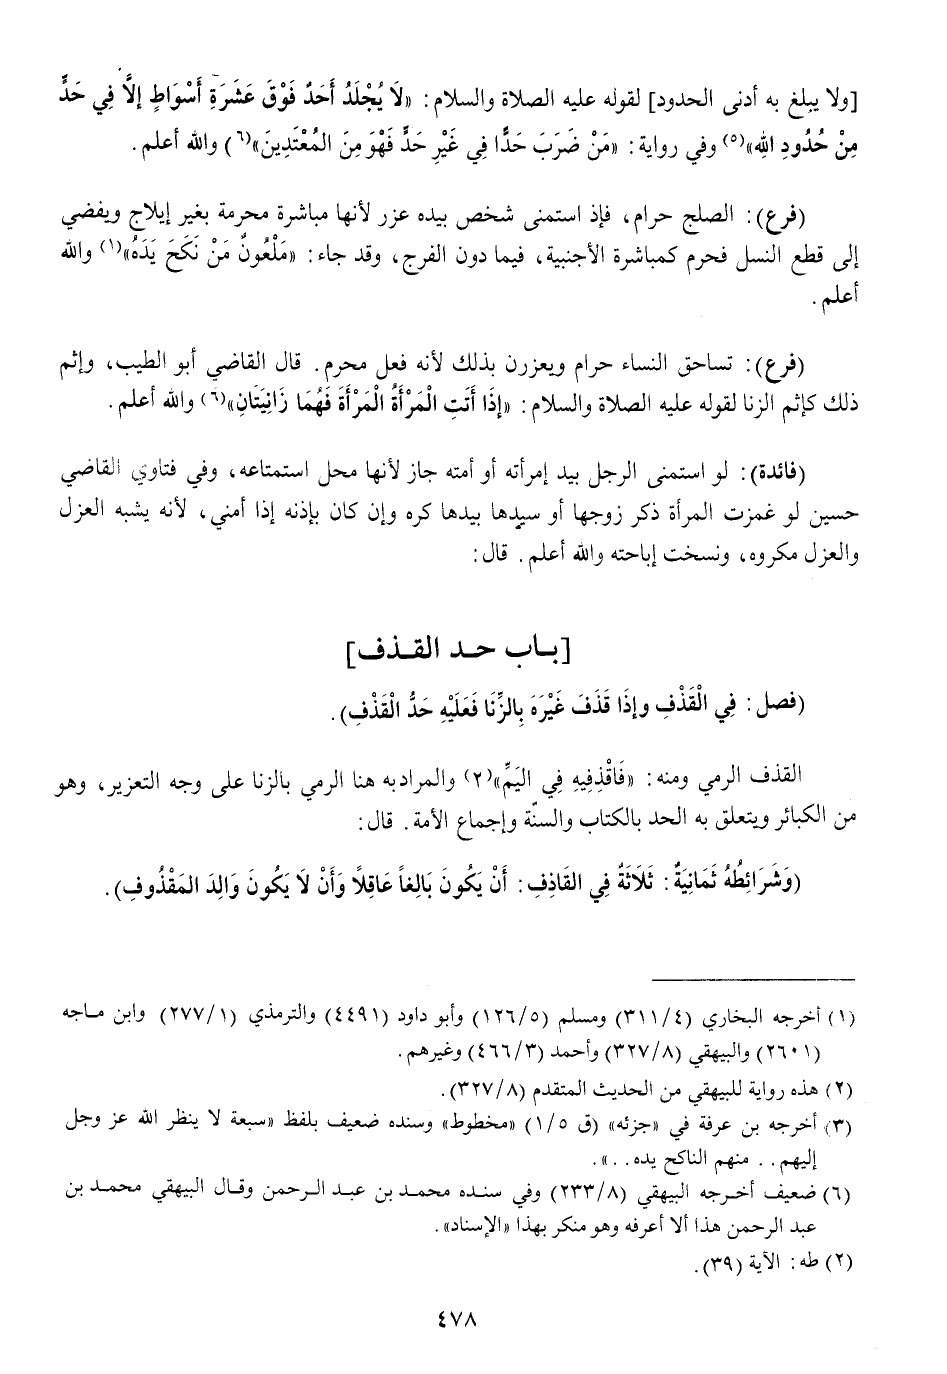 [ولا يبلغ به أدنى الحدود] لقوله عليه الصلاة والسلام: «لَا يُجْلَدُ أَحَدٌ فَوْقَ عَشَرَةِ أَسْوَاطٍ إلاَّ فِي حَدٍّ
مِنْ حُدُودِ اللهِ»(٥) وفي رواية: «مَنْ ضَرَبَ حَدًّا فِي غَيْرِ حَدٍّ فَهْوَ مِنَ المُعْتَدِينَ»(٦) والله أعلم.
(فرع): الصلج حرام، فإذ استمنى شخص بيده عزر لأنها مباشرة محرمة بغير إيلاج ويفضي
إلى قطع النسل فحرم كمباشرة الأجنبية، فيما دون الفرج، وقد جاء: «مَلْعُونٌ مَنْ نَكَحَ يَدَهُ»(١) والله
أعلم.
(فرع): تساحق النساء حرام ويعزرن بذلك لأنه فعل محرم. قال القاضي أبو الطيب، وإثم
ذلك كإثم الزنا لقوله عليه الصلاة والسلام: «إذَا أَتَتِ الْمَرْأَةُ الْمَرْأَةَ فَهُمَا زَانِيَتَانِ»(٦) والله أعلم.
(فائدة): لو استمنى الرجل بيد إمرأته أو أمته جاز لأنها محل استمتاعه، وفي فتاوي القاضي
حسين لو غمزت المرأة ذكر زوجها أو سيدها بيدها كره وإن كان بإذنه إذا أمني، لأنه يشبه العزل
والعزل مكروه، ونسخت إباحته والله أعلم. قال:
[باب حد القذف]
(فصل: فِي الْقَذْفِ وإذَا قَذَفَ غَيْرَهَ بِالزِّنَا فَعَلَيْهِ حَدُّ الْقَذْفِ).
القذف الرمي ومنه: «فَاقْذِفِيهِ فِي اليَمِّ»(٢) والمرادبه هنا الرمي بالزنا على وجه التعزير، وهو
من الكبائر ويتعلق به الحد بالكتاب والسنّة وإجماع الأمة. قال:
(وَشَرَائِطُهُ ثَمَانِيَةٌ: ثَلَاثَةٌ فِي القَاذِفِ: أَنْ يَكُونَ بَالِغاً عَاقِلاً وَأَنْ لَا يَكُونَ وَالِدَ المَقْذُوفِ).
(١) أخرجه البخاري (٣١١/٤) ومسلم (١٢٦/٥) وأبو داود (٤٤٩١) والترمذي (٢٧٧/١) وابن ماجه
(٢٦٠١) والبيهقي (٣٢٧/٨) وأحمد (٤٦٦/٣) وغيرهم.
(٢) هذه رواية للبيهقي من الحديث المتقدم (٣٢٧/٨).
(٣) أخرجه بن عرفة في «جزئه» (ق ١/٥) «مخطوط» وسنده ضعيف بلفظ «سبعة لا ينظر الله عز وجل
إليهم.. منهم الناكح يده..».
(٦) ضعيف أخرجه البيهقي (٢٣٣/٨) وفي سنده محمد بن عبد الرحمن وقال البيهقي محمد بن
عبد الرحمن هذا ألا أعرفه وهو منكر بهذا «الإسناد».
(٢) طه: الآية (٣٩).
٤٧٨